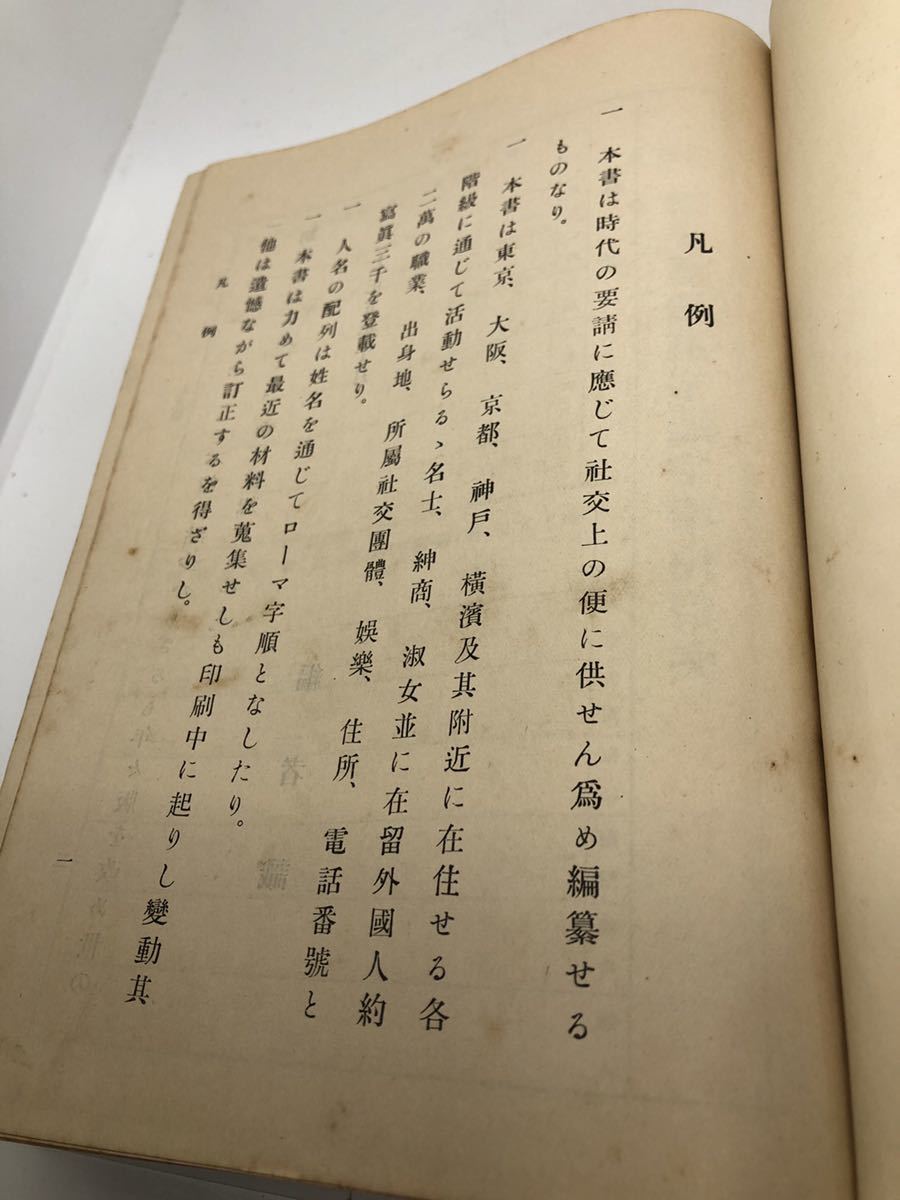 凡例
一 本書は時代の要請に應じて社交上の便に供せん爲め編纂せる
ものなり。
一 本書は東京、大阪、京都、神戸、橫濱及其附近に在住せる各
階級に通じて活動せらるゝ名士、紳商、淑女並に在留外國人約
二萬の職業、出身地、所屬社交團體、娯樂、住所、電話番號と
寫眞三千を登載せり。
一 人名の配列は姓名を通じてローマ字順となしたり。
一 本書は力めて最近の材料を蒐集せしも印刷中に起りし變動其
他は遺憾ながら訂正するを得ざりし。
凡例
一
編者識